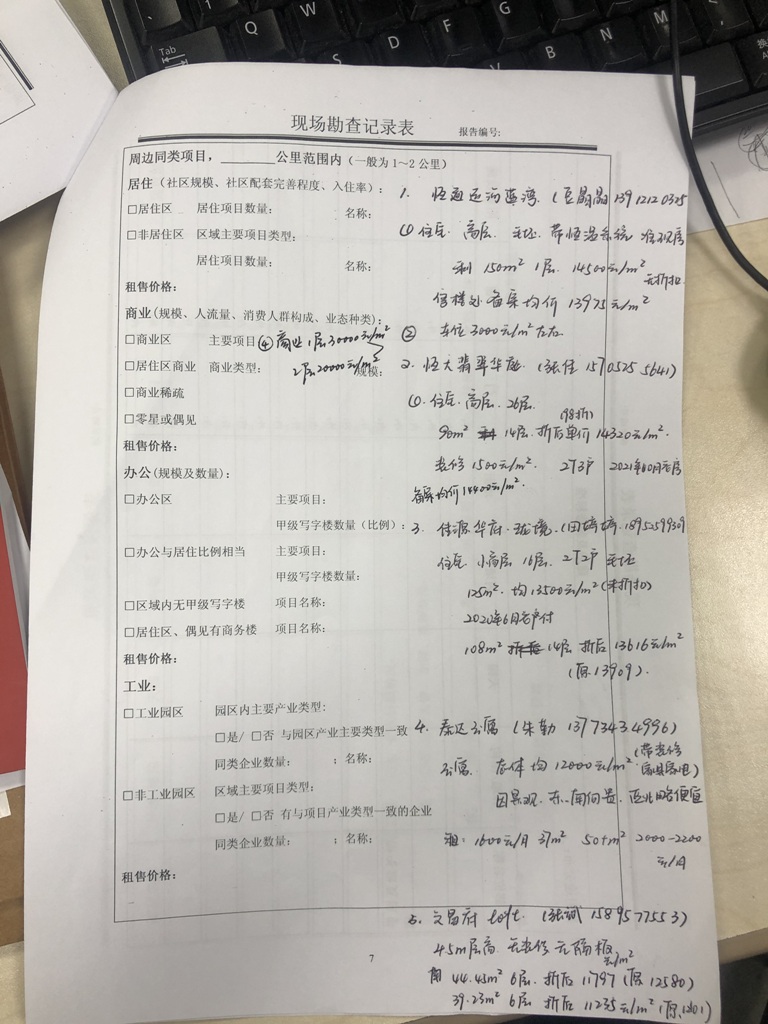 现场勘查记录表 报告编号:
周边同类项目，______公里范围内（一般为1～2公里）
居住（社区规模、社区配套完善程度、入住率）:
□居住区 居住项目数量: 名称:
□非居住区 区域主要项目类型:
居住项目数量: 名称:
租售价格:
商业(规模、人流量、消费人群构成、业态种类):
□商业区 主要项目 ④商业1层30000元/m²
□居住区商业 商业类型: 2层20000元/m² 规模:
□商业稀疏
□零星或偶见
租售价格:
办公(规模及数量):
□办公区 主要项目:
甲级写字楼数量(比例):
□办公与居住比例相当 主要项目:
甲级写字楼数量:
□区域内无甲级写字楼 项目名称:
□居住区、偶见有商务楼 项目名称:
租售价格:
工业:
□工业园区 园区内主要产业类型:
□是/□否 与园区产业主要类型一致
同类企业数量: ; 名称:
□非工业园区 区域主要项目类型:
□是/□否 有与项目产业类型一致的企业
同类企业数量: ; 名称:
租售价格:
1. 恒通运河蓝湾.
①住宅. 高层. 毛坯. 带恒温系统 准现房
150m² 1层. 14500元/m² 无折扣
售楼处备案均价 13975元/m²
② 车位3000元/m²左右.
2. 恒大翡翠华庭 (张佳 15705255641)
①. 住宅. 高层. 26层.
90m² 14层. 折后单价14320元/m². (98折)
装修1500元/m². 2T3户 2021年10月交房
备案均价14400元/m².
3. 佳源华府·珑境.
住宅. 小高层. 16层. 2T2户 毛坯
125m². 均13500元/m²(未折扣)
2020年6月交付
108m² 14层 折后13616元/m²
(原13909).
4. 泰达公寓 (朱勤 13773434996)
公寓. 在售均12000元/m² (带装修家具家电)
因景观. 东、南向贵. 西北略便宜
租: 1600元/月 37m² 50+m² 2000-2200
元/月
5. 文昌府 loft.
4.5m层高. 无装修无隔板
44.43m² 6层. 折后11797(原12580) 元/m²
39.23m² 6层 折后11235元/m²
7